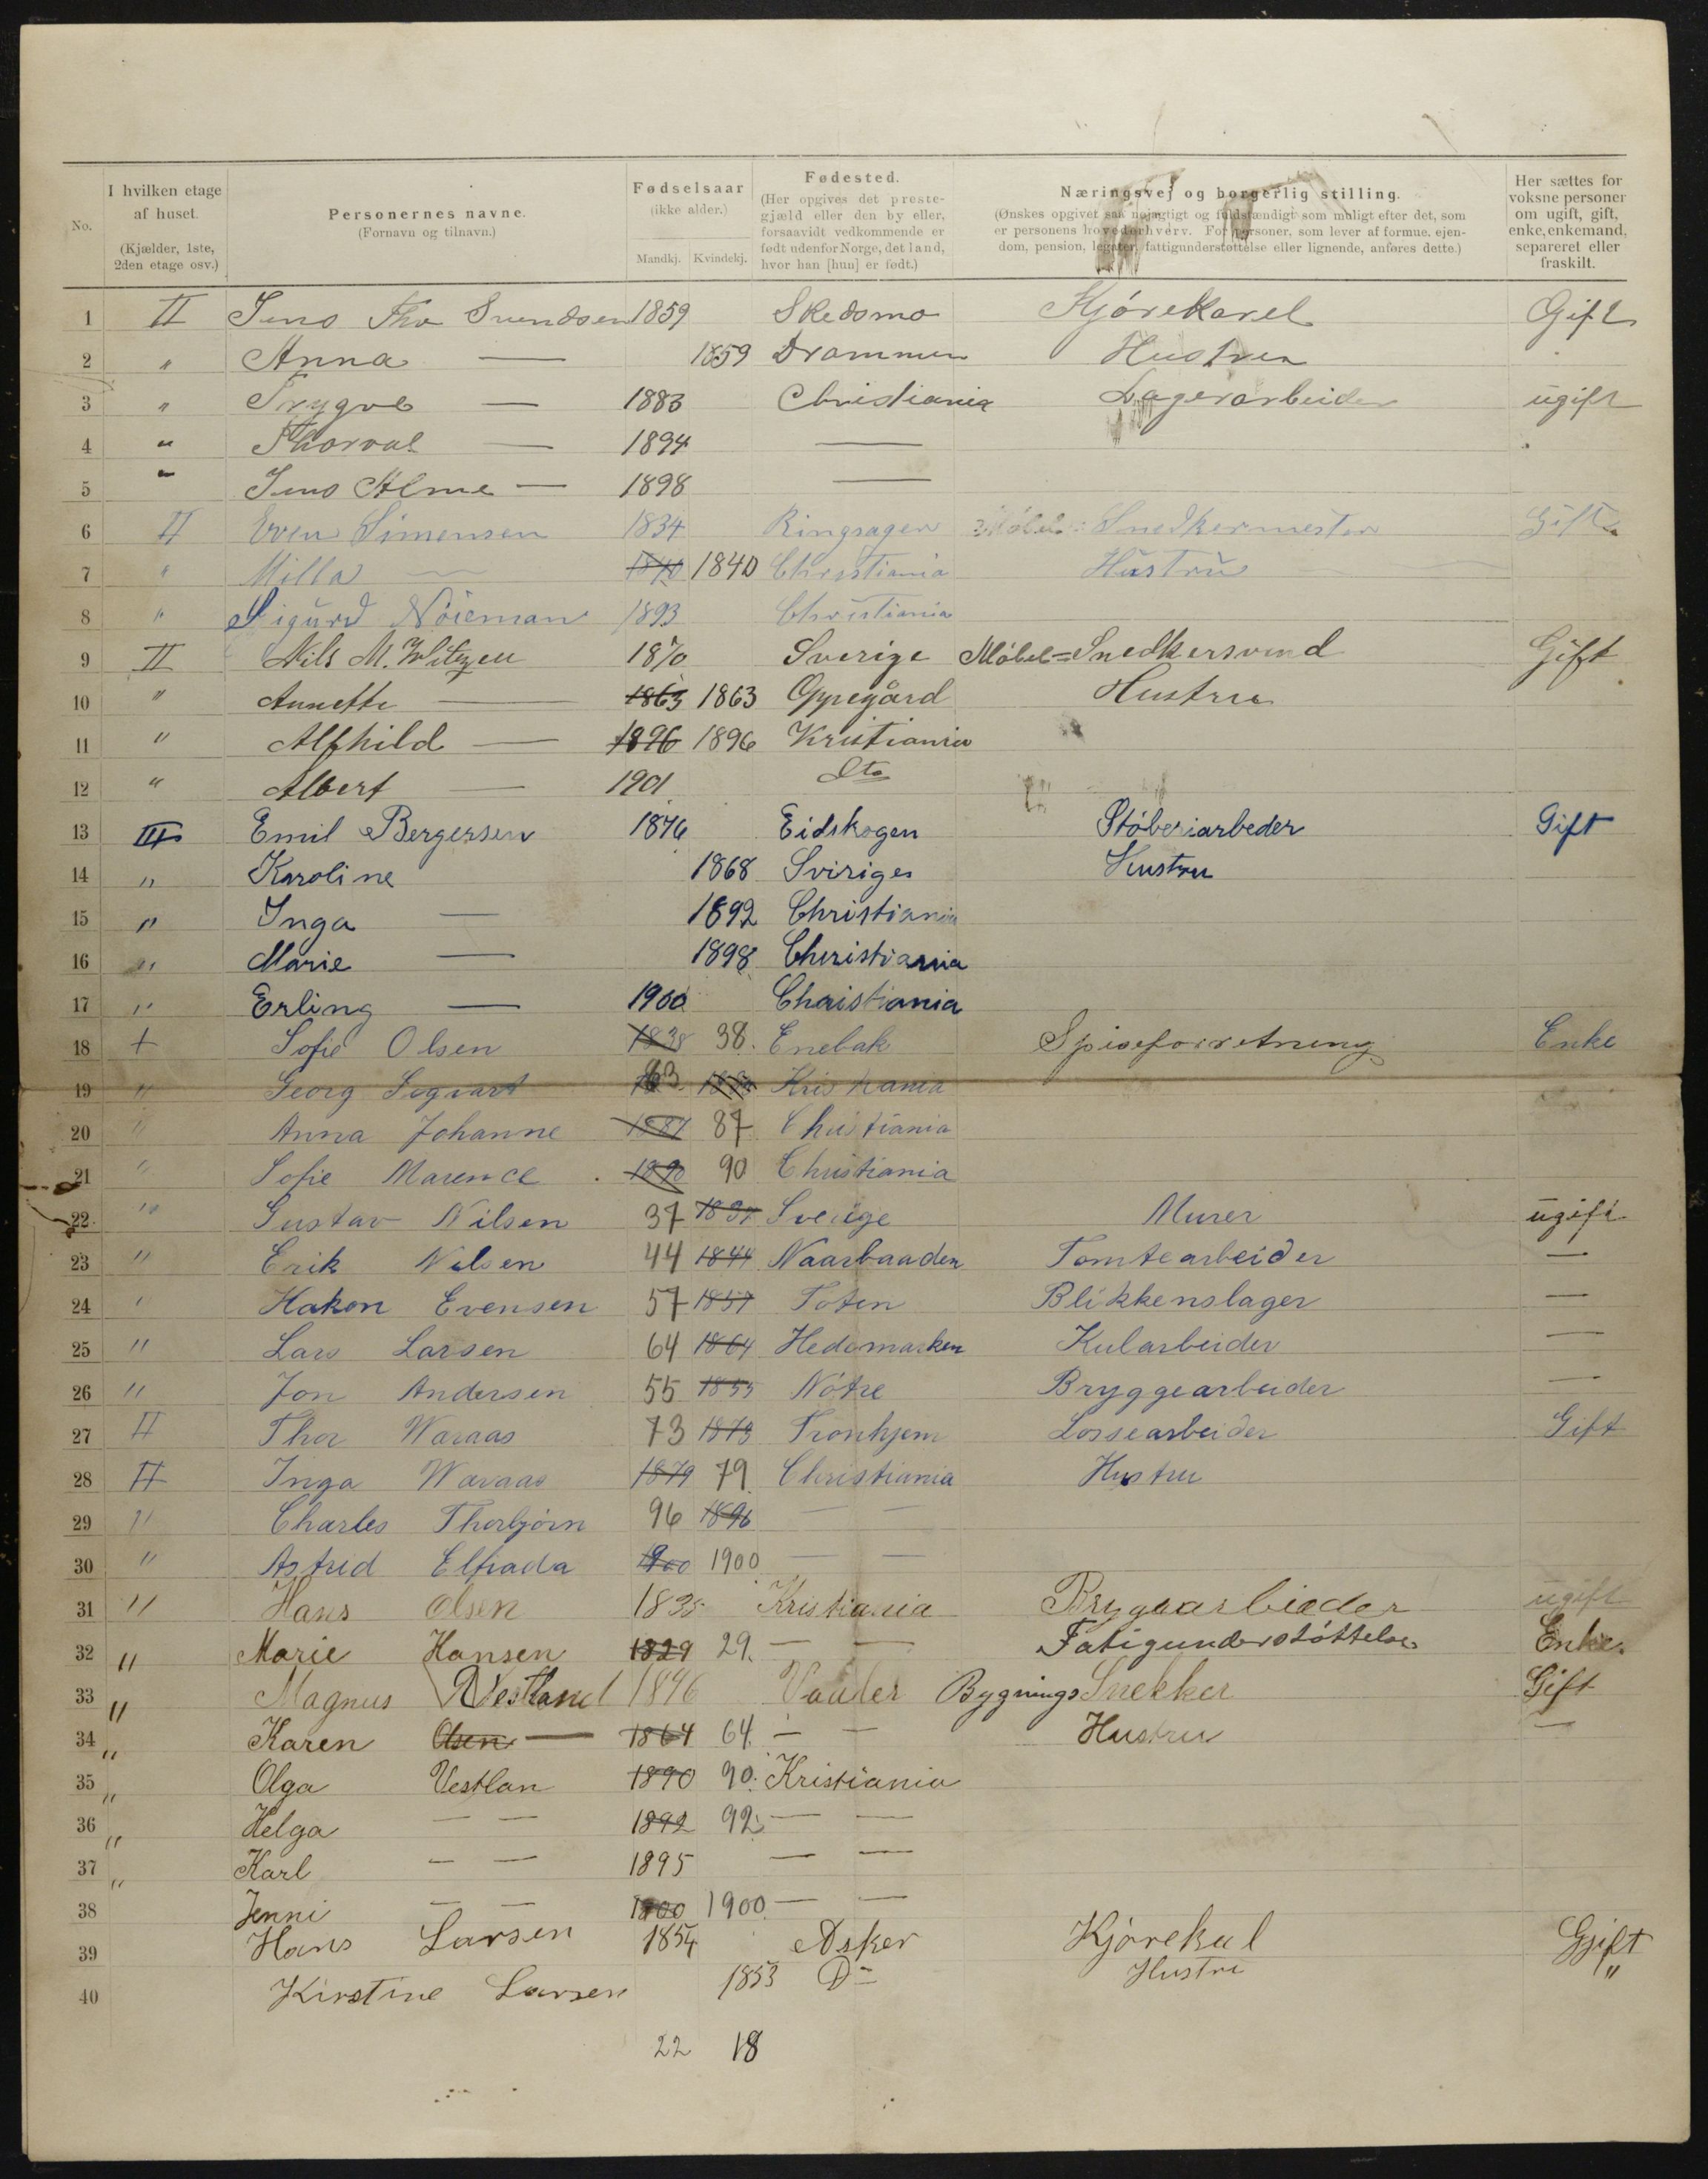 No.
I hvilken etage af huset. (Kjælder, 1ste, 2den etage osv.)
Personernes navne. (Fornavn og tilnavn.)
Fødselsaar (ikke alder.) Mandkj. Kvindekj.
Fødested. (Her opgives det prestegjæld eller den by eller, forsaavidt vedkommende er født udenfor Norge, det land, hvor han [hun] er født.)
Næringsvej og borgerlig stilling. (Ønskes opgivet saa nøjagtigt og fuldstændigt som muligt efter det, som er personens hovederhverv. For personer, som lever af formue, ejendom, pension, legater, fattigunderstøttelse eller lignende, anføres dette.)
Her sættes for voksne personer om ugift, gift, enke, enkemand, separeret eller fraskilt.
1 II Jens Svendsen 1859 Skedsmo Kjørekarel Gift
2 " Anna — 1859 Drammen Hustru
3 " Trygve — 1883 Christiania Lagerarbeider ugift
4 " Thorval — 1894 —
5 " Jens — 1898 —
6 II Even Simensen 1834 Ringsager Møbel Snedkermester Gift
7 " Milla — 1840 1840 Christiania Hustru
8 " Sigurd Nöieman 1893 Christiania
9 II Nils M. 1870 Sverige Møbel=Snedkersvend Gift
10 " Annette — 1863 1863 Oppegård Hustru
11 " Alfhild — 1896 1896 Kristiania
12 " Albert — 1901 dto
13 III Emil Bergersen 1876 Eidskogen Støberiarbeder Gift
14 " Karoline 1868 Sveriges Hustru
15 " Inga — 1892 Christiania
16 " Marie — 1898 Christiania
17 " Erling — 1900 Christiania
18 + Sofie Olsen 1838 38. Enebak Spiseforretning Enke
19 " Georg Sogvart 83 Kristiania
20 " Anna Johanne 1887 87 Christiania
21 " Sofie Marence 1890 90 Christiania
22 " Gustav Nilsen 37 1837 Sverige Murer ugift
23 " Erik Nilsen 44 1844 Naarbaaden Tomtearbeider —
24 " Hakon Evensen 57 1857 Toten Blikkenslager —
25 " Lars Larsen 64 1864 Hedemarken Kularbeider —
26 " Jon Andersen 55 1855 Nótre Bryggearbeider —
27 II Thor Waraas 73 1873 Tronhjem Lossearbeider Gift
28 II Inga Waraas 1879 79 Christiania Hustru
29 " Charles Thorbjörn 96 1896 — —
30 " Astrid Elfrada 1900 1900 — —
31 " Hans Olsen 1835 Kristiania Bryggarbieder ugift
32 " Marie Hansen 1829 29. — — Fatigunderstøttelse Enke.
33 " Magnus Westland 1876 Bygnings Snekker Gift
34 " Karen Olsen — 1864 64. — — Hustru —
35 " Olga Vestlan 1890 90. Kristiania
36 " Helga — — 1892 92. — —
37 " Karl — — 1895 — —
38 Jenni — — 1900 1900 — —
39 Hans Larsen 1854 Asker Kjørekal Gift
40 Kirstine Larsen 1853 Do Hustru "
22 18